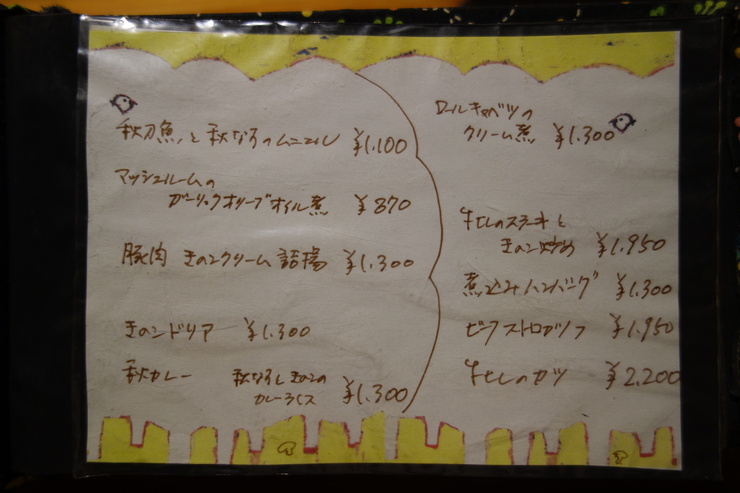 秋刀魚と秋なすのムニエル ¥1,100
マッシュルームの
ガーリックオリーブオイル煮 ¥870
豚肉 きのこクリーム 詰揚 ¥1,300
きのこドリア ¥1,300
秋カレー 秋なすときのこの
カレーライス ¥1,300
ロールキャベツの
クリーム煮 ¥1,300
牛ヒレのステーキと
きのこ炒め ¥1,950
煮込みハンバーグ ¥1,300
ビーフストロガノフ ¥1,950
牛ヒレのカツ ¥2,200